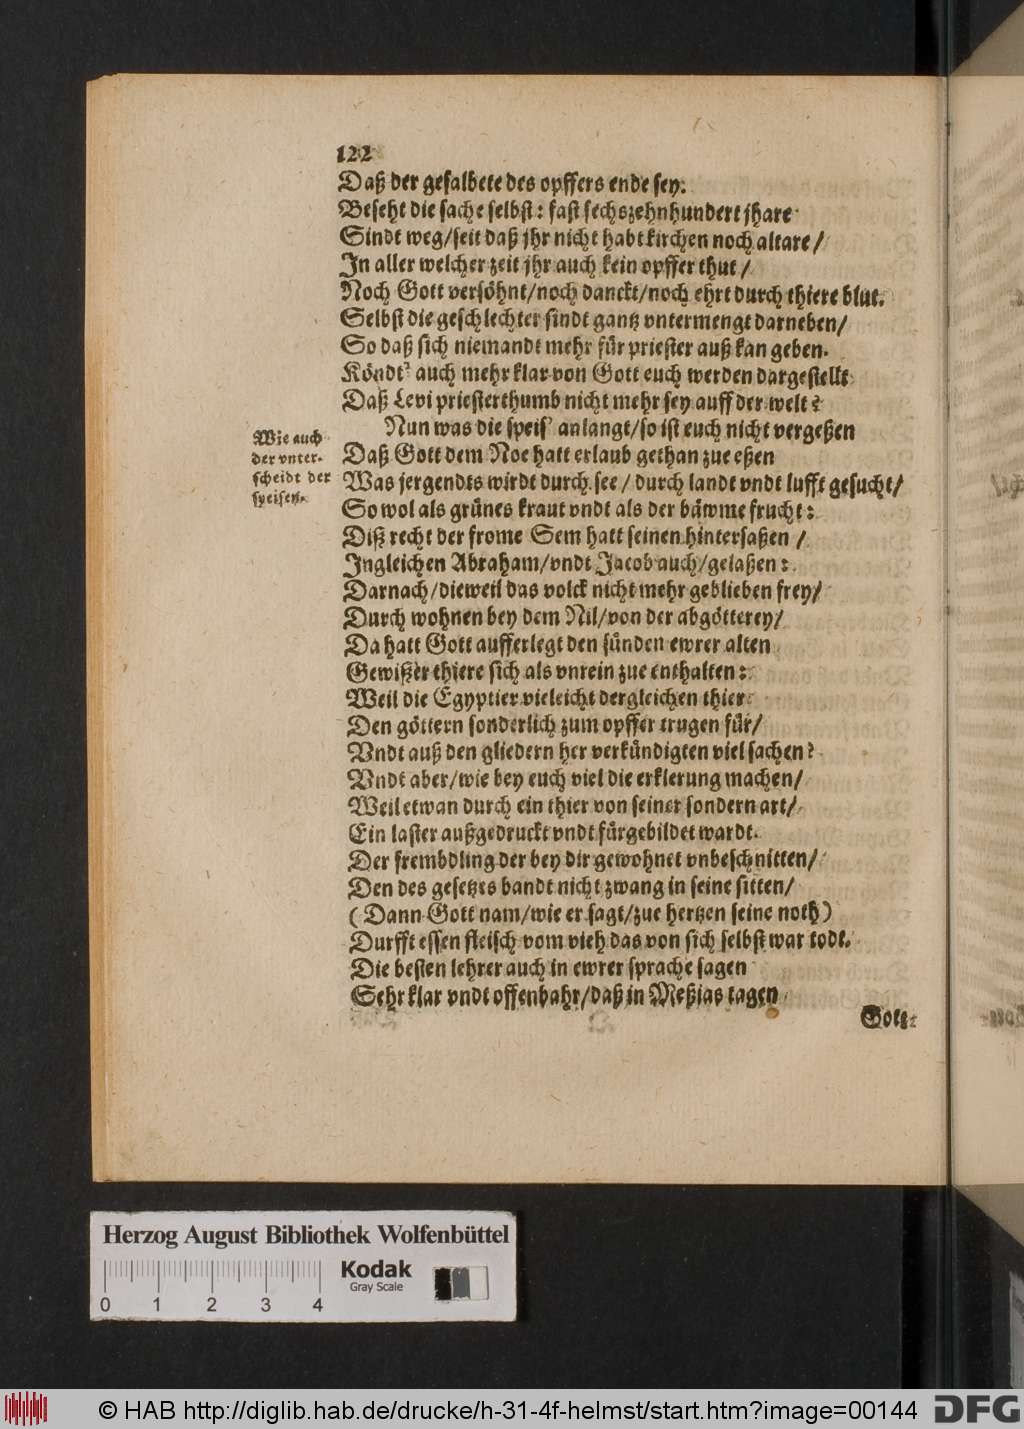 122
Daß der gesalbete des opffers ende sey.
Beseht die sache selbst: fast sechszehnhundert jhare
Sindt weg/seit daß jhr nicht habt kirchen noch altare/
In aller welcher zeit jhr auch kein opffer thut/
Noch Gott versöhnt/noch danckt/noch ehrt durch thiere blut.
Selbst die geschlechter sindt gantz vntermengt darneben/
So daß sich niemandt mehr für priester auß kan geben.
Köndt' auch mehr klar von Gott euch werden dargestellt
Daß Levi priesterthumb nicht mehr sey auff der welt?
Nun was die speis' anlangt/so ist euch nicht vergeßen
Wie auch
der vnter-
scheidt der
speisen.
Daß Gott dem Noe hatt erlaub gethan zue eßen
Was jergendts wirdt durch see/durch landt vndt lufft gesucht/
So wol als grünes kraut vndt als der bäwme frucht:
Diß recht der frome Sem hatt seinen hintersaßen/
Ingleichen Abraham/vndt Jacob auch/gelaßen:
Darnach/dieweil das volck nicht mehr geblieben frey/
Durch wohnen bey dem Nil/von der abgötterey/
Da hatt Gott aufferlegt den sünden ewrer alten
Gewißer thiere sich als vnrein zue enthalten:
Weil die Egyptier vieleicht dergleichen thier
Den göttern sonderlich zum opffer trugen für/
Vndt auß den gliedern her verkündigten viel sachen?
Vndt aber/wie bey euch viel die erklerung machen/
Weil etwan durch ein thier von seiner sondern art/
Ein laster außgedruckt vndt fürgebildet wardt.
Der frembdling der bey dir gewohnet vnbeschnitten/
Den des gesetzes bandt nicht zwang in seine sitten/
(Dann Gott nam/wie er sagt/zue hertzen seine noth)
Durfft essen fleisch vom vieh das von sich selbst war todt.
Die besten lehrer auch in ewrer sprache sagen
Sehr klar vndt offenbahr/daß in Meßias tagen
Gott
Herzog August Bibliothek Wolfenbüttel
Kodak
Gray Scale
0 1 2 3 4
© HAB http://diglib.hab.de/drucke/h-31-4f-helmst/start.htm?image=00144
DFG